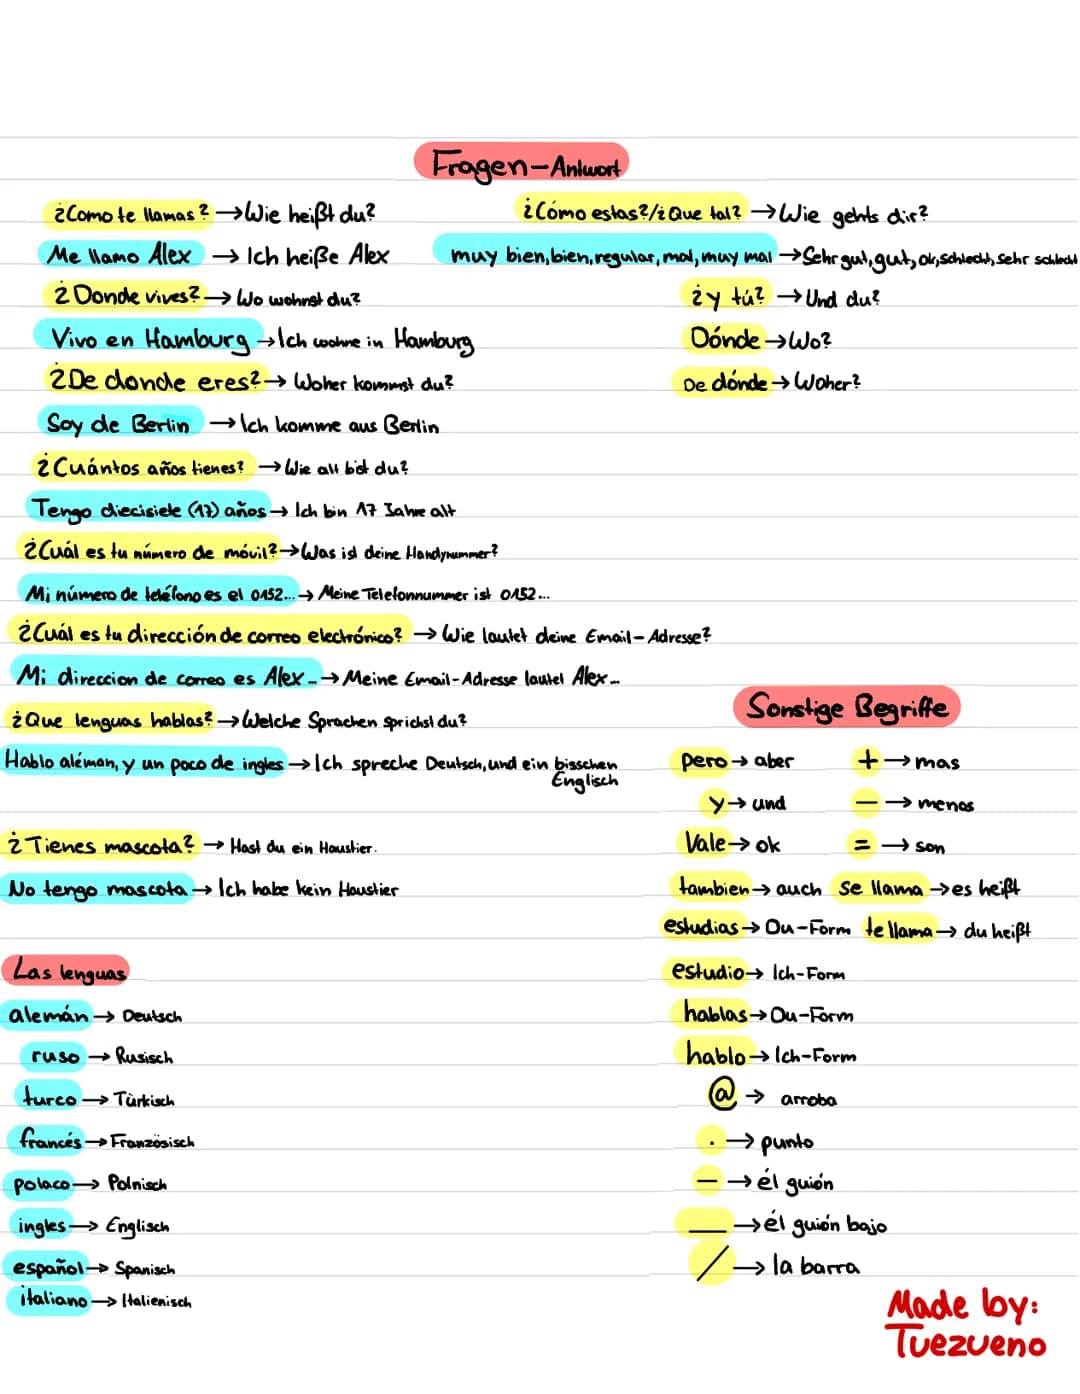 Fragen-Antwort
¿Como te llamas? → Wie heißt du?
Me llamo Alex → Ich heiße Alex
¿Donde vives? → Wo wohnst du?
Vivo en Hamburg → Ich wohne in Hamburg
¿De donde eres? → Woher kommst du?
Soy de Berlin → Ich komme aus Berlin
¿Cuántos años tienes? → Wie alt bist du?
Tengo diecisiete (17) años → Ich bin 17 Jahre alt
¿Cuál es tu número de móvil? → Was ist deine Handynummer?
Mi número de teléfono es el 0152... → Meine Telefonnummer ist 0152...
¿Cuál es tu dirección de correo electrónico? → Wie lautet deine Email-Adresse?
Mi direccion de correo es Alex... → Meine Email-Adresse lautet Alex...
¿Que lenguas hablas? → Welche Sprachen sprichst du?
Hablo aléman, y un poco de ingles → Ich spreche Deutsch, und ein bisschen
Englisch
¿Tienes mascota? → Hast du ein Haustier.
No tengo mascota → Ich habe kein Haustier
¿Cómo estas?/¿Que tal? → Wie gehts dir?
muy bien, bien, regular, mal, muy mal → Sehr gut, gut, ok, schlecht, sehr schlecht
¿y tú? → Und du?
Dónde → Wo?
De dónde → Woher?
Las lenguas
alemán → Deutsch
ruso → Rusisch
turco → Türkisch
francés → Französisch
polaco → Polnisch
ingles → Englisch
español → Spanisch
italiano → Italienisch
Sonstige Begriffe
pero → aber
+ → mas
y → und
− → menos
Vale → ok
= → son
tambien → auch
se llama → es heißt
estudias → Du-Form
te llama → du heißt
estudio → Ich-Form
hablas → Du-Form
hablo → Ich-Form
@ → arroba
. → punto
- → él guión
_ → él guión bajo
/ → la barra
Made by:
Tuezueno